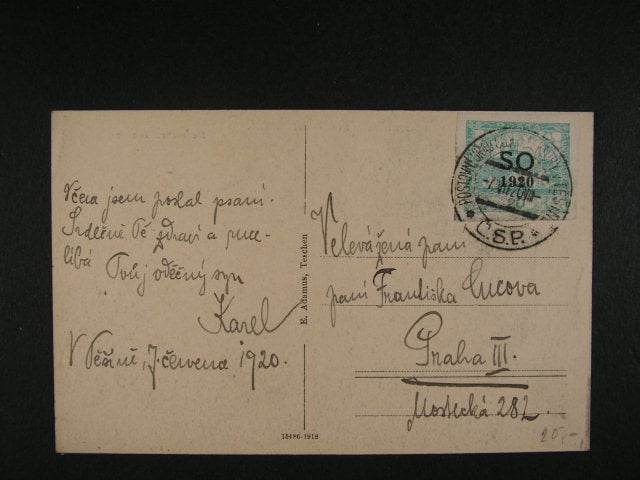 Včera jsem poslal psaní.
Srdečně Tě zdraví a
líbá Tvůj vděčný syn
Karel
V Těšíně, 7. června 1920.
E. Adamus, Teschen
15496-1918
S.O
1920
Č.S.P.
Velevážená paní
paní Františka Cucova
Praha III.
Mostecká 282
20,-